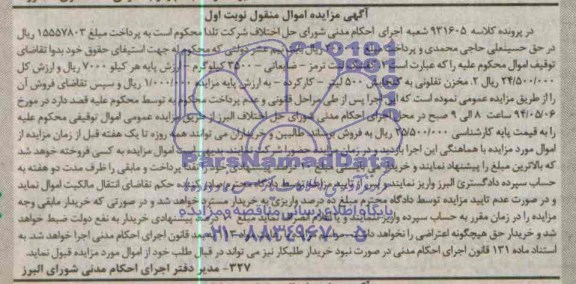 آگهی مزایده اموال منقول نوبت اول
در پرونده کلاسه ۹۳۱۶۰۵ شعبه اجرای احکام مدنی شورای حل اختلاف شرکت تلدا محکوم است به پرداخت مبلغ ۱۵۵۵۷۸۰۳ ریال
در حق حسینعلی حاجی محمدی و پرداخت مبلغ ریال نیم عشر دولتی که محکوم له جهت استیفای حقوق خود بدوا تقاضای
توقیف اموال محکوم علیه را که عبارت است ترمز - ضایعاتی - ۳۵۰۰ کیلوگرم - ارزش پایه هر کیلو ۷۰۰۰ ریال و ارزش کل
۲۴/۵۰۰/۰۰۰ ریال ۲. مخزن تفلونی به گنجایش ۵۰۰ لیتر - کارکرده - به ارزش پایه مزایده ۱/۰۰۰/۰۰۰ و سپس تقاضای فروش آن
را از طریق مزایده عمومی نموده است که این اجرا پس از طی مراحل قانونی و عدم پرداخت محکوم به توسط محکوم علیه قصد دارد در مورخ
۹۴/۰۵/۰۶ ساعت ۸ الی ۹ صبح در محل اجرای احکام مدنی شورای حل اختلاف البرز از طریق مزایده عمومی اموال توقیفی محکوم علیه
را به قیمت پایه کارشناسی ۲۵/۵۰۰/۰۰۰ ریال به فروش برساند. طالبین و خریداران می توانند همه روزه تا یک هفته قبل از زمان مزایده از
اموال مورد مزایده با هماهنگی این اجرا بازدید و در زمان مزایده حضورا شرکت نمایند اموال مزایده به کسی فروخته خواهد شد
که بالاترین مبلغ را پیشنهاد نمایند و خریدار پرداخت و مابقی را ظرف مدت دو هفته به
حساب سپرده دادگستری البرز واریز نمایند تایید مزایده توسط دادگاه حکم تقاضای انتقال مالکیت اموال نماید
و در صورت عدم تایید مزایده توسط دادگاه محترم مبلغ ده درصد واریزی به خریدار مسترد خواهد شد و در صورتی که خریدار مابقی وجه
مزایده را در زمان مقرر به حساب سپرده واریز پیشنهادی خریدار به نفع دولت ضبط خواهد
شد و خریدار حق هیچگونه اعتراضی را نخواهد داشت قانون اجرای احکام مدنی اجرا خواهد شد. به
استناد ماده ۱۳۱ قانون اجرای احکام مدنی در صورت نبود خریدار طلبکار نیز می تواند در قبال طلب خود از اموال مورد مزایده قبول نماید.
۳۲۷- مدیر دفتر اجرای احکام مدنی شورای البرز
ParsNamadData
پایگاه اطلاع رسانی مناقصه و مزایده
۰۲۱-۸۸۳۴۹۶۷۰-۵